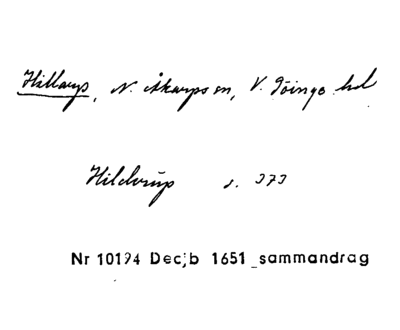 Hillarp, N. Åkarps sn, V. Göinge hd
Hilderup s. 373
Nr 10194 Dec;b 1651 sammandrag